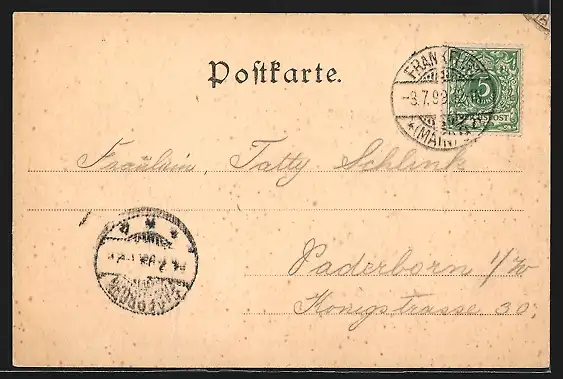 Postkarte.
FRANKFURT
-3.7.99
*(MAIN)
5
REICHSPOST
Fräulein, Tatty Schlink
Paderborn i/W
Königstrasse 30.
PADERBORN